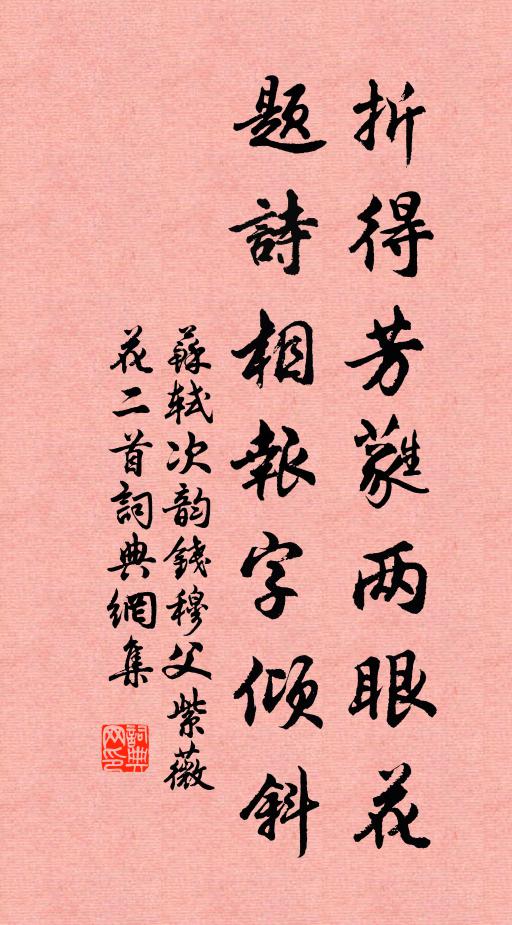 折得芳蕤两眼花
题詩相報字傾斜
蘇轼次韵錢穆父紫薇
花二首詞典網集
詞典网印